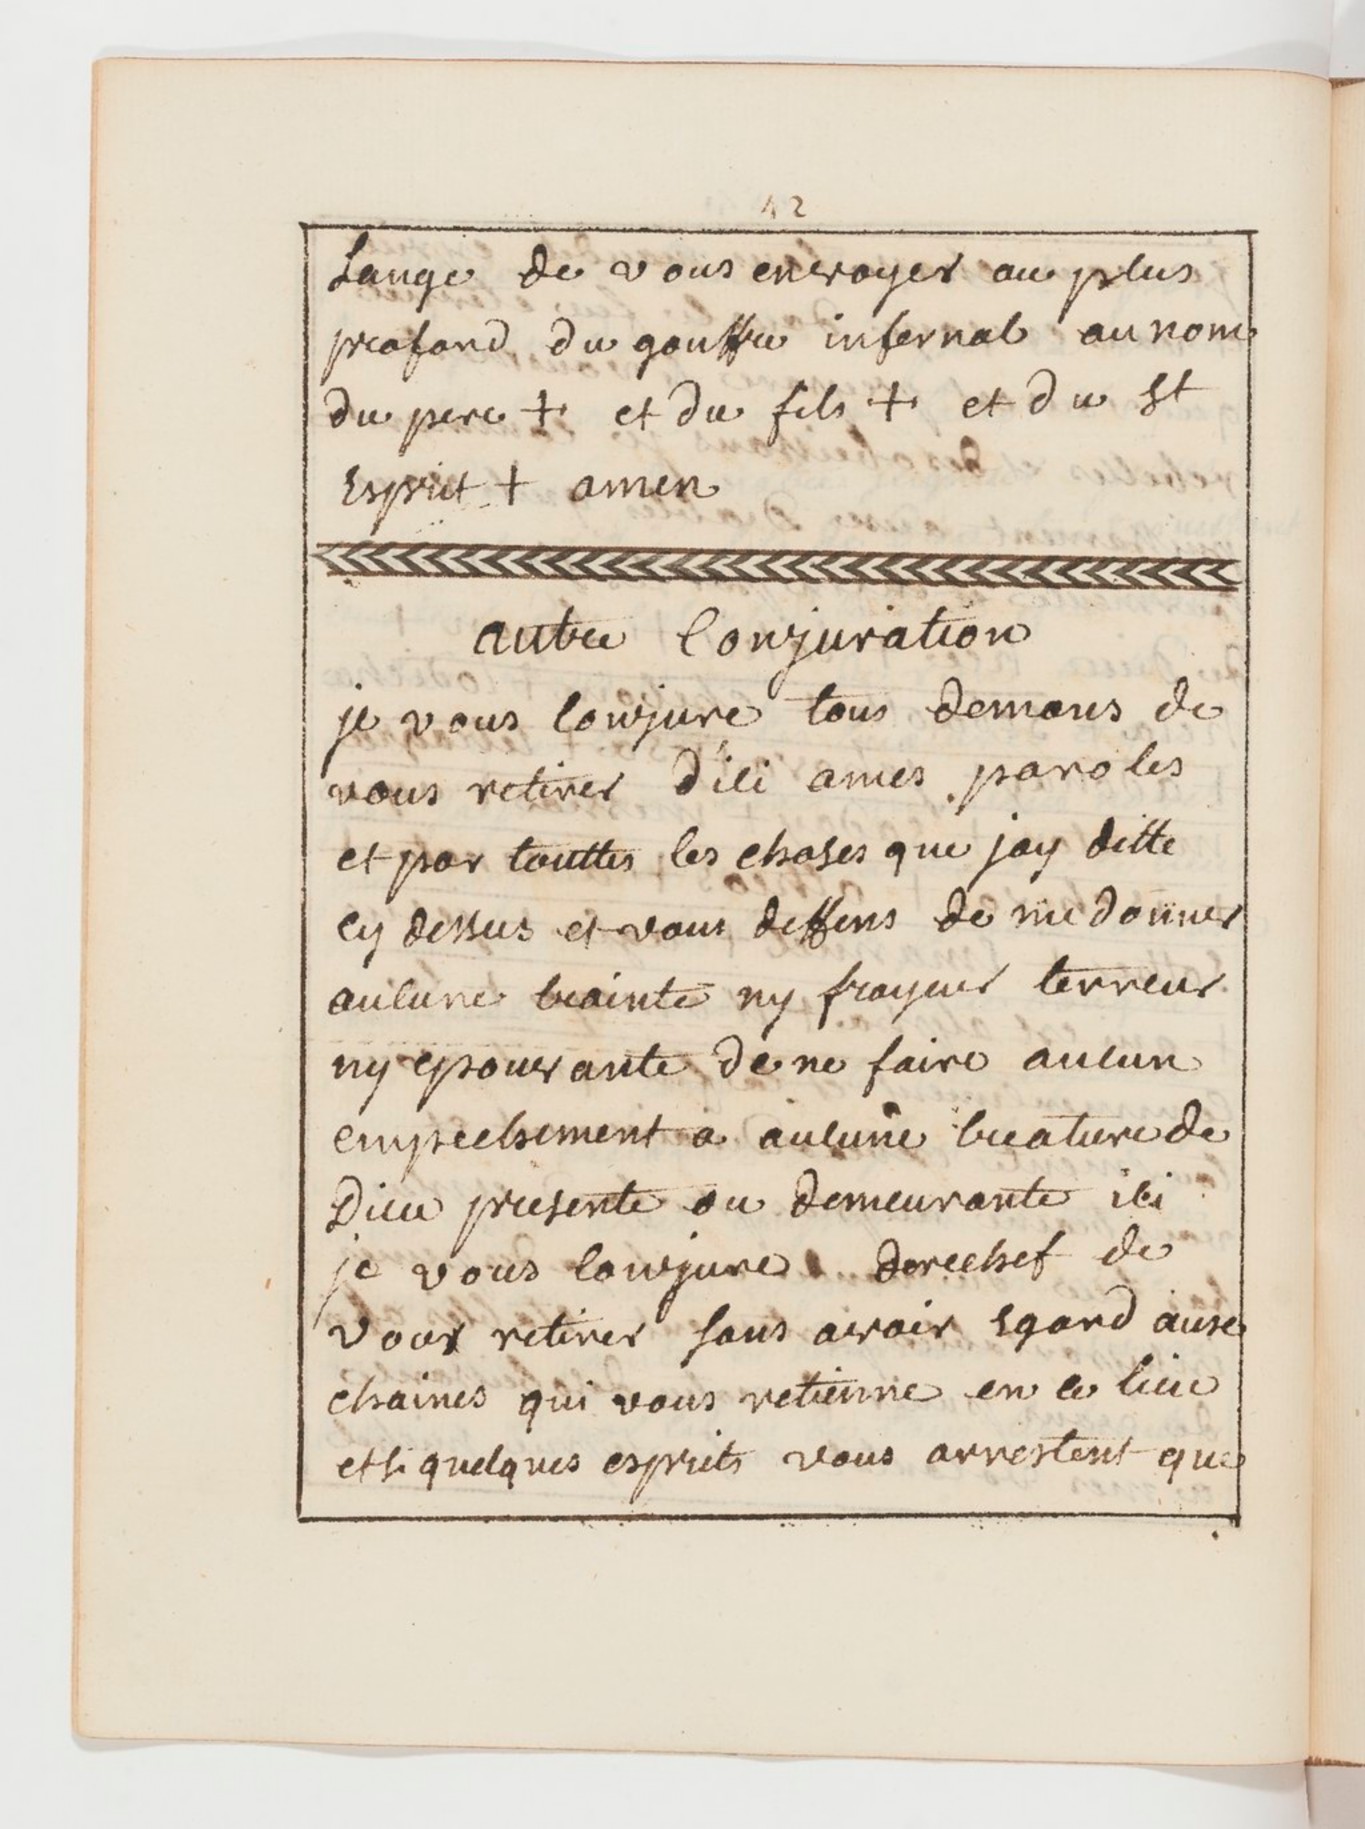 42
Lange de vous envoyer au plus
profond du gouffre infernal au nom
du pere + et du fils + et du St
Esprit + amen
autre Conjuration
je vous Conjure tous demons de
vous retirer d'ici ames paroles
et par touttes les choses que jay ditte
cy dessus et vous deffens de me donner
aucune crainte ny frayeur terreur
ny epouvante de ne faire aucun
empechement a aucune creature de
Dieu presente ou demeurante ici
je vous Conjure derechef de
vous retirer sans avoir Egard auxe
chaines qui vous retienne en ce lieu
et si quelques esprits vous arrestent que